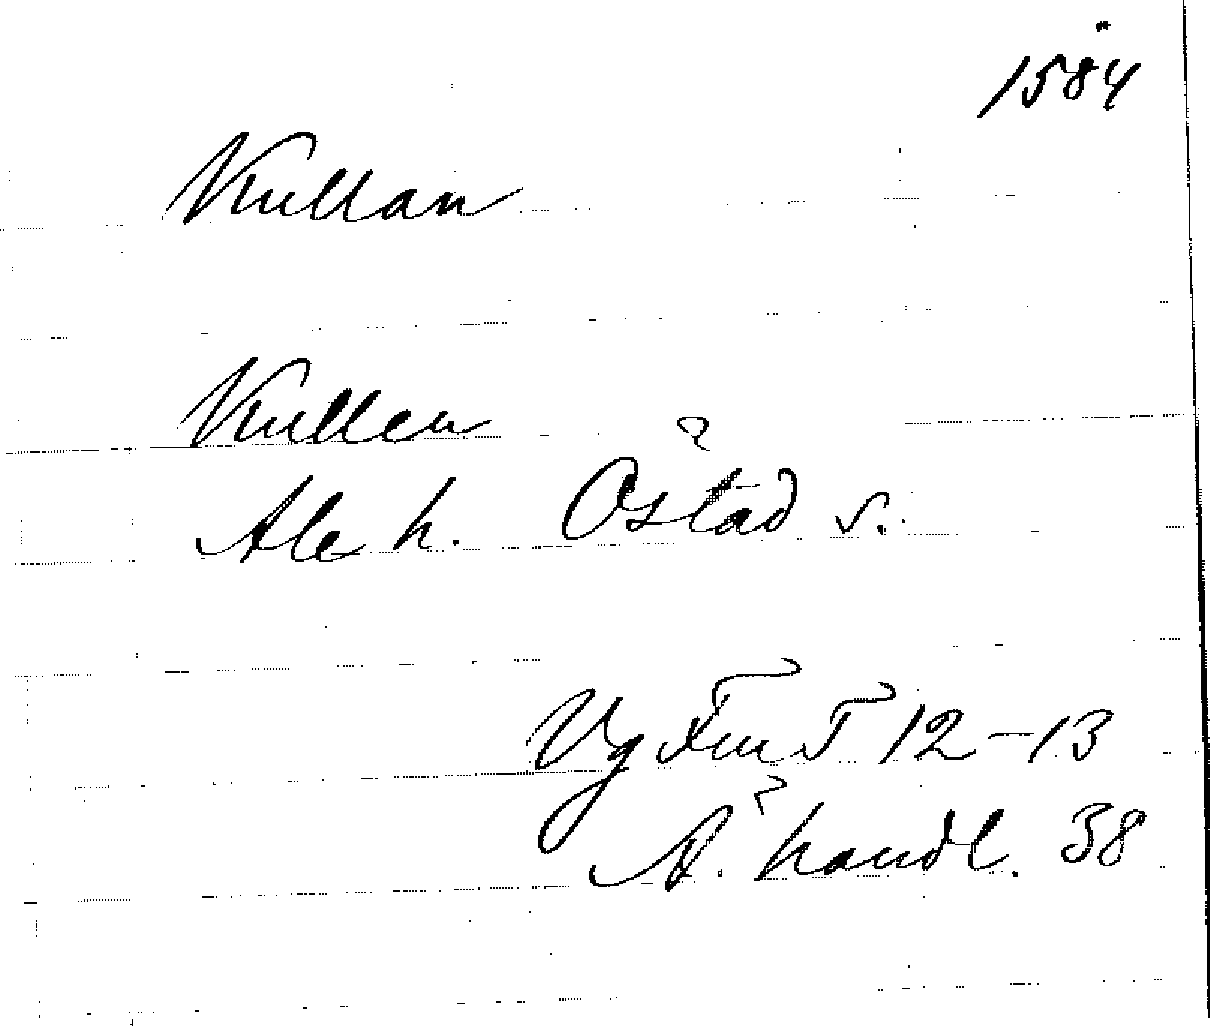 1584
Kullan
Kullen
Ale h. Östad s.
Vg FmT 12-13
Ä. handl. 38